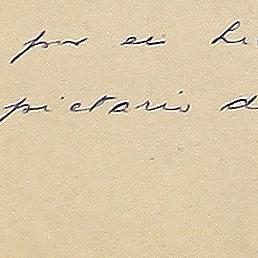 por el
pietario d